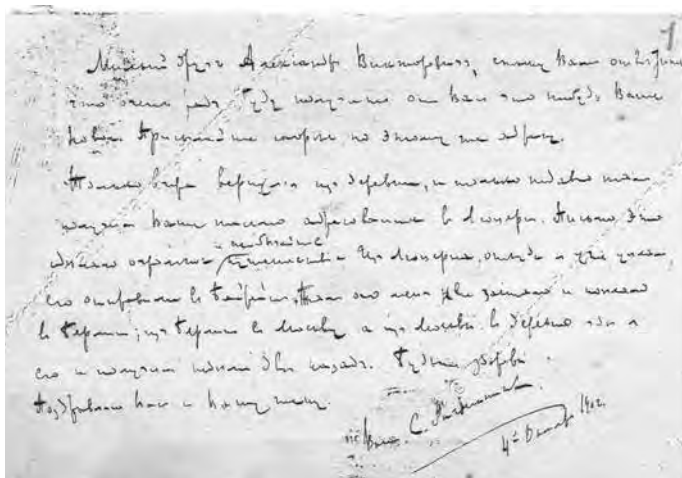 Милый другъ Александръ Викторовичъ, спѣшу Вамъ отвѣтить
что очень радъ буду получить отъ Васъ что нибудь Ваше
новое. Присылайте скорѣе, по этому же адресу.
Только вчера вернулся изъ деревни, и только недавно тамъ
получилъ Ваше письмо адресованное въ Люцернъ. Письмо это
сдѣлало огромное и необычайное путешествіе. Изъ Люцерна, откуда я уже уѣхалъ,
его отправили въ Байрейтъ. Тамъ оно меня не застало и попало
въ Берлинъ; изъ Берлина въ Москву а изъ Москвы въ деревню гдѣ я
его и получилъ недѣли двѣ назадъ. Будьте здоровы.
Поздравляю Васъ и Вашу жену.
Вашъ С. Рахманиновъ
4е Октяб. 1902.